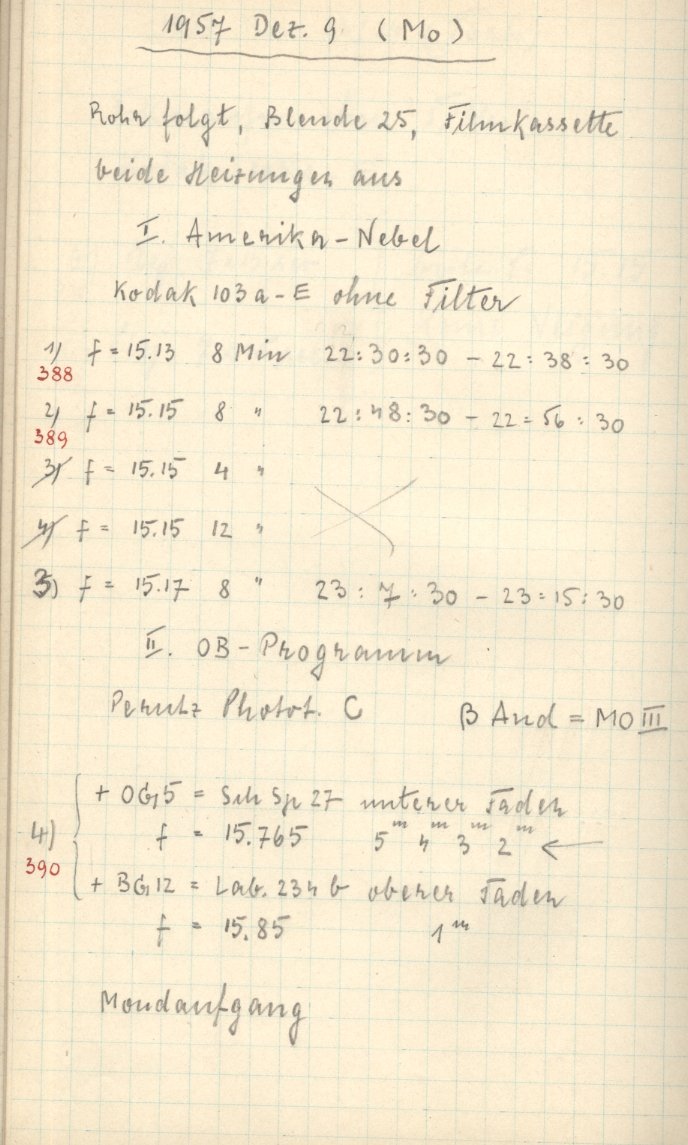 1957 Dez. 9 (Mo)
Rohr folgt, Blende 25, Filmkassette
beide Heizungen aus
I. Amerika-Nebel
Kodak 103a-E ohne Filter
1) f = 15.13 8 Min 22:30:30 - 22:38:30
388
2) f = 15.15 8 " 22:48:30 - 22:56:30
389
3) f = 15.15 4 "
4) f = 15.15 12 "
3) f = 15.17 8 " 23:7:30 - 23:15:30
II. OB-Programm
Perutz Photot. C β And = M0 III
+ OG5 = Sch Sp 27 unterer Faden
4) f = 15.765 5m 4m 3m 2m ←
390
+ BG12 = Lab. 234 b oberer Faden
f = 15.85 1m
Mondaufgang